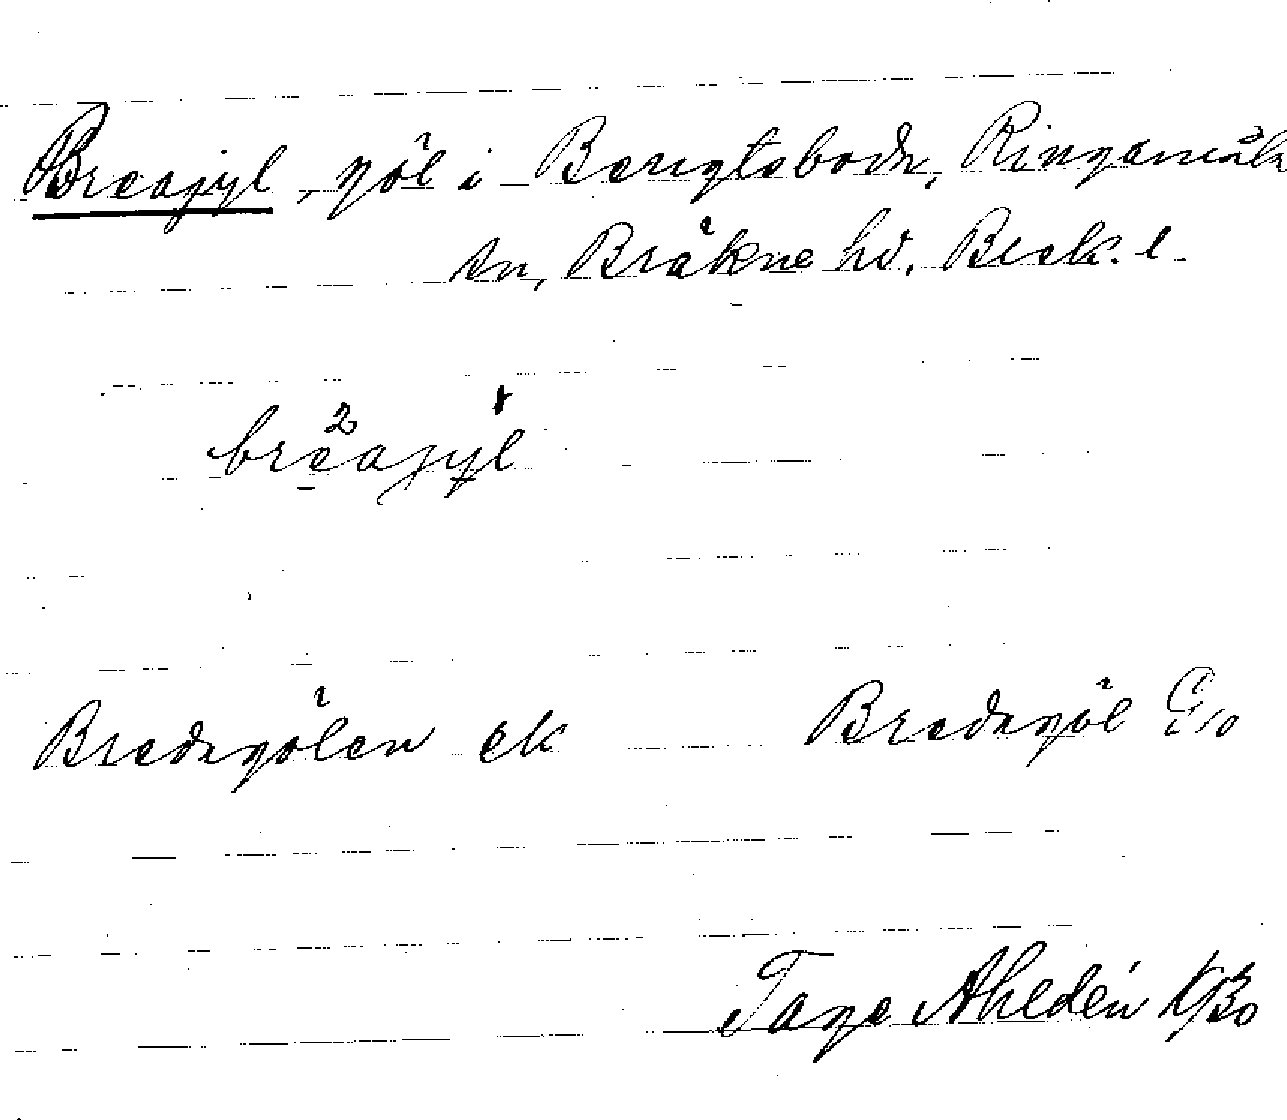 Breajyl, göl i Bengtsboda, Ringamåla
sn, Bräkne hd. Blek. l.
breajyl
Bredagölen ek Bredagöl
Tage Ahldén 1930